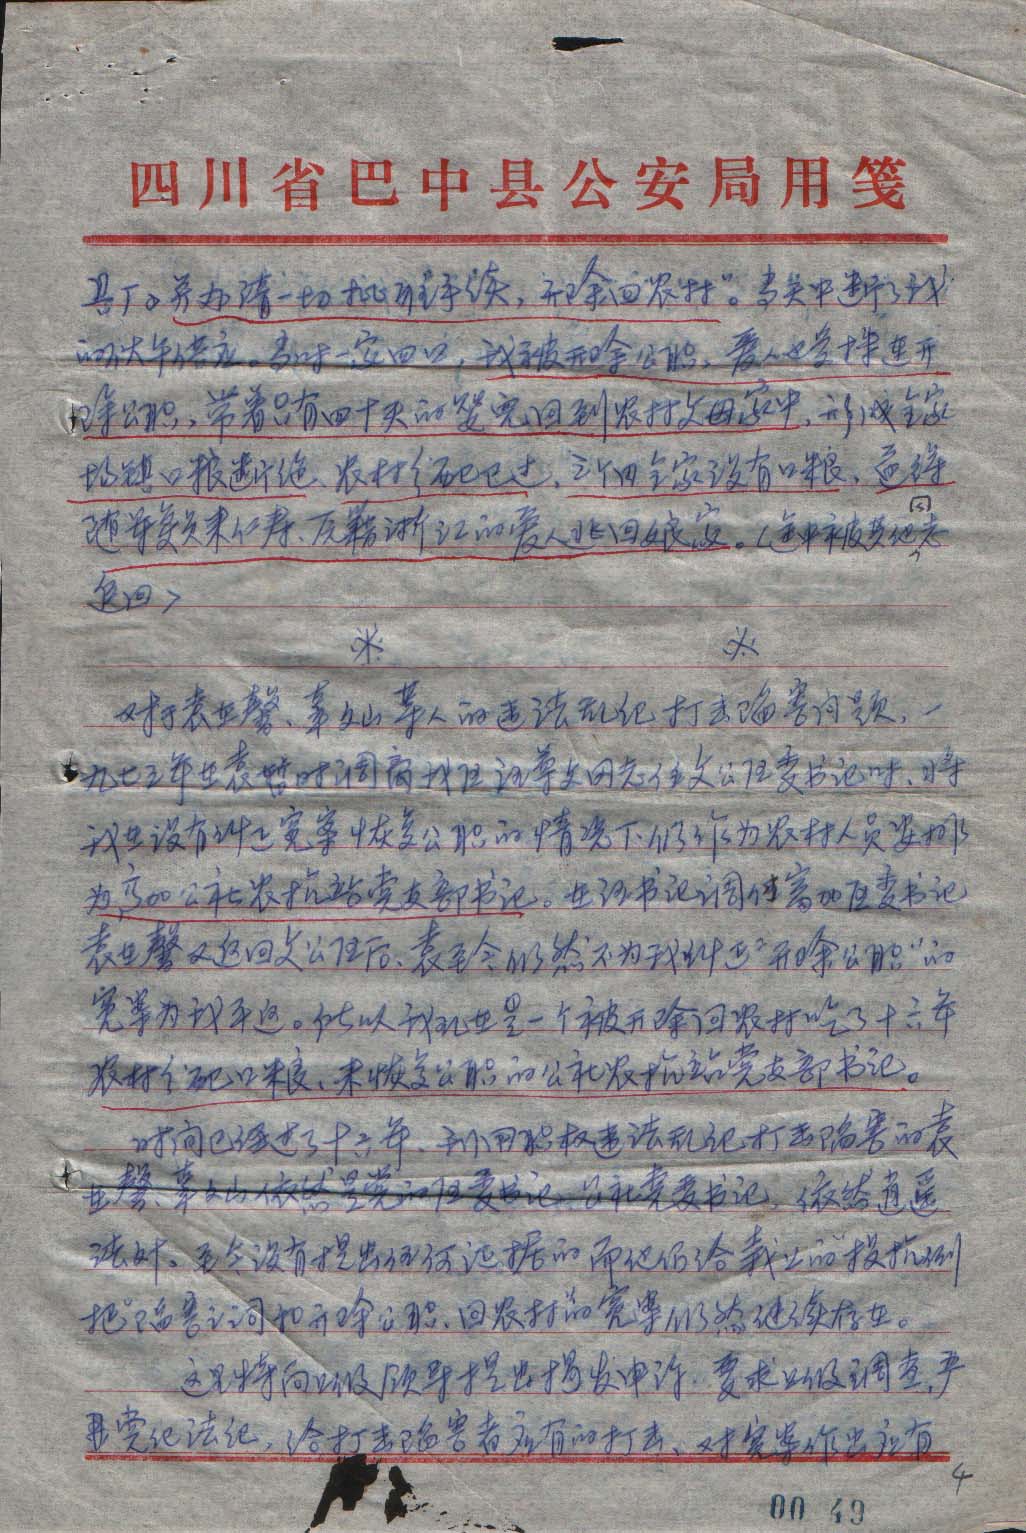 四川省巴中县公安局用笺
。并办清一切批手续，开除回农村”。当关中断了我
的伙午供应。当时一家四口，我被开除公职、爱人也受株连开
除公职，带着只有四十天的婴儿回到农村父母家中，形成全家
场镇口粮断绝、农村分配已过、三个四全家没有口粮、逼得
随军复员来仁寿、原籍浙江的爱人逃回娘家。（途中被其他
返回）
※ ※
对于袁世馨、辜文山等人的违法乱纪打击陷害问题，一
九七五年在袁暂时调离我区汪尊文同志任文公区委书记时，将
我在没有纠正冤案恢复公职的情况下仍作为农村人员安排
为高加公社农机站党支部书记。在汪书记调任富加区委书记
袁世馨又返回文公区后、袁至今仍然不为我纠正“开除公职”的
冤案为我平反。所以我现在是一个被开除回农村吃了十六年
农村分配口粮、未恢复公职的公社农机站党支部书记。
时间已经过了十六年、利用职权违法乱纪打击陷害的袁
世馨、辜文山依然是党的区委书记、公社党委书记，依然逍遥
法外。至今没有提出任何证据的而他们给我的“投机倒
把”陷害之词和开除公职、回农村的冤案仍然继续存在。
这里特向各级领导提出揭发申诉，要求各级调查，严
肃党纪法纪，给打击陷害者应有的打击、对冤案作出应有
4
00 49